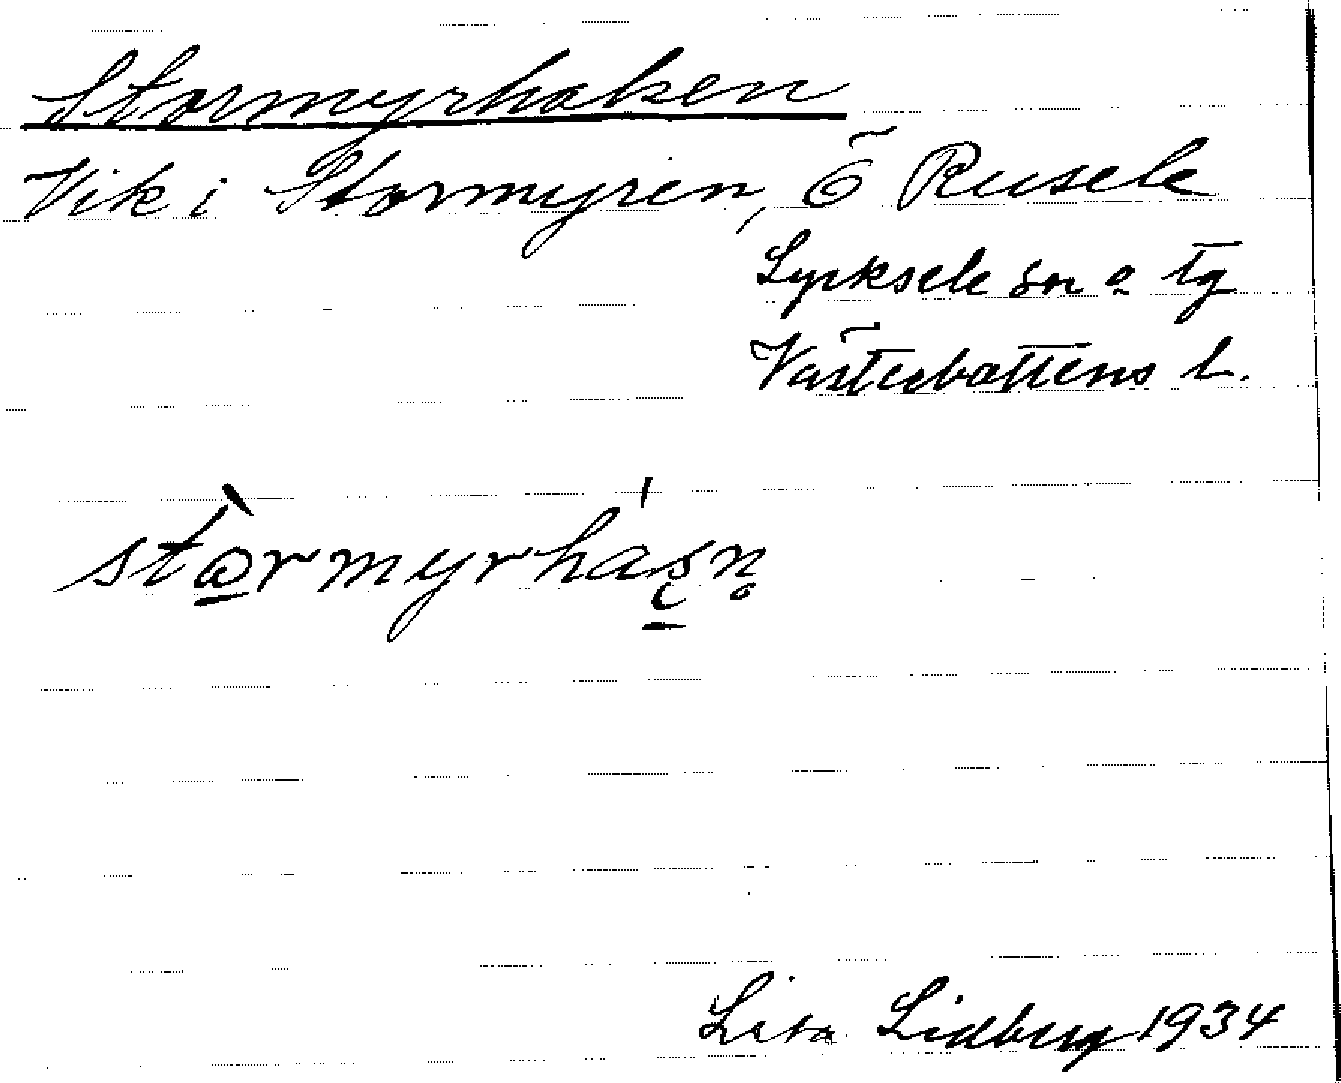 Stormyrhaken
Vik i Stormyren, Ö Rusele
Lycksele sn o tg
Västerbottens l.
Lisa Lidberg 1934